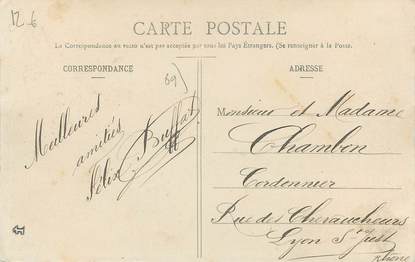 12-6
CARTE POSTALE
La Correspondance au recto n'est pas acceptée par tous les Pays Étrangers. (Se renseigner à la Poste.
CORRESPONDANCE
69)
Meilleures
amitiés
Félix Buffat
ADRESSE
Monsieur et Madame
Chambon
Cordonnier
Rue des Chevaucheurs
Lyon St Just
Rhône